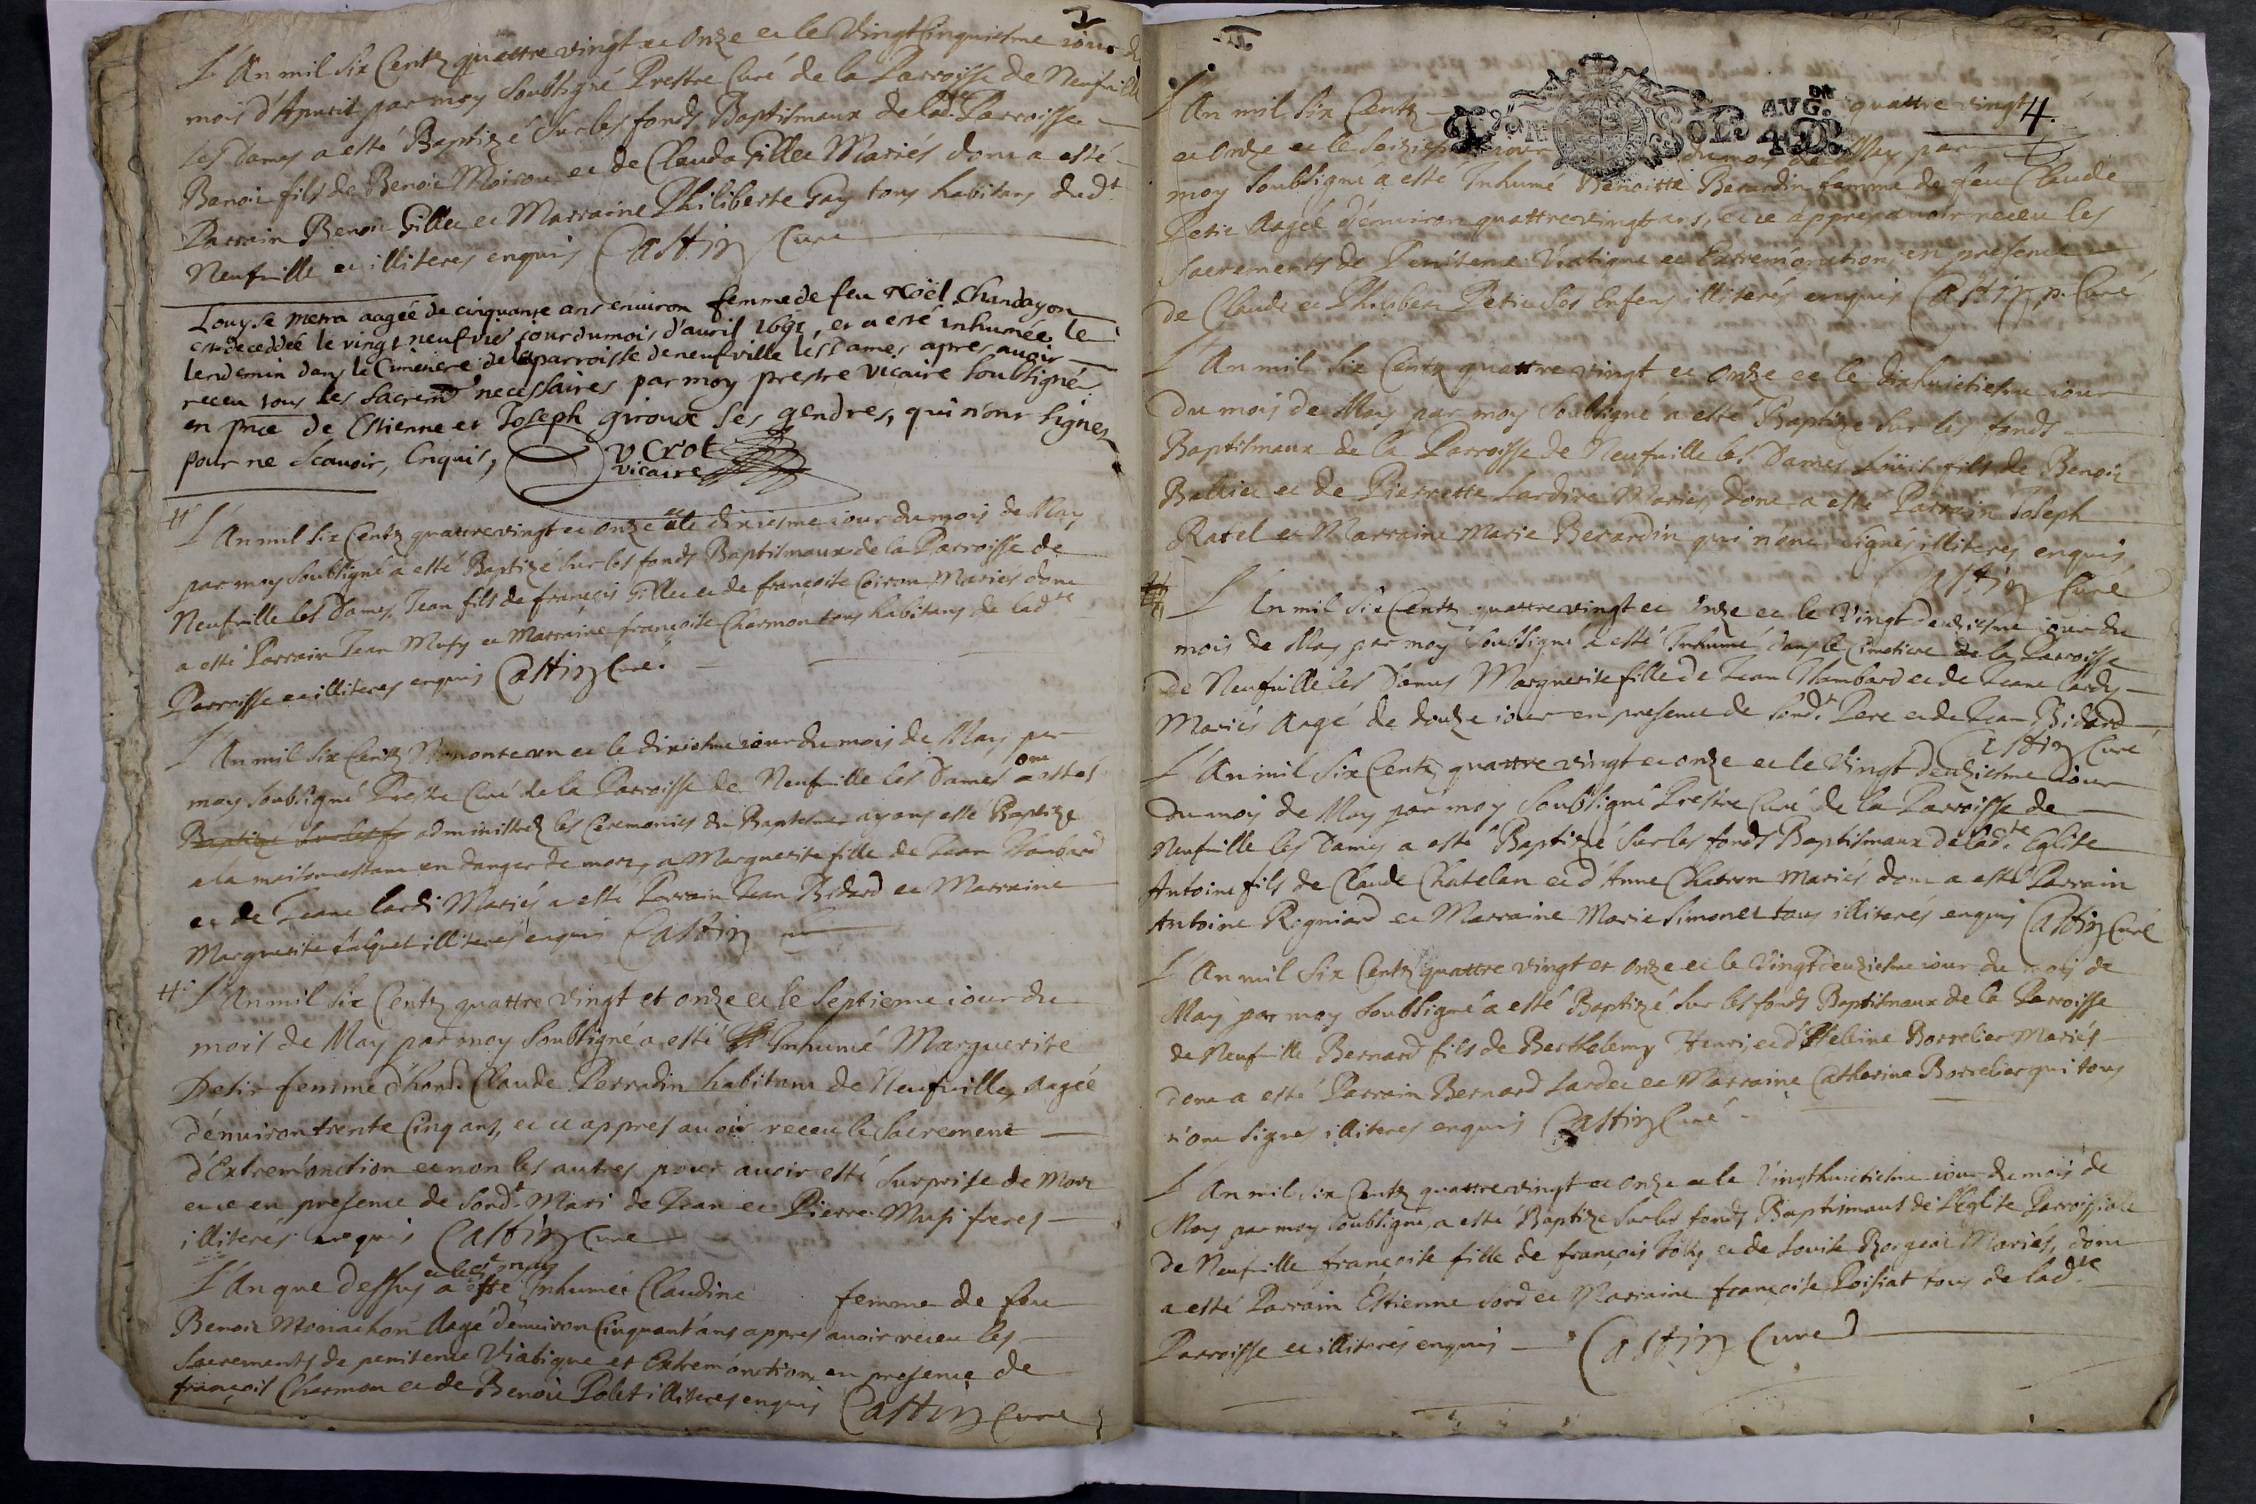 L'An mil six Centz quattre vingt et onze et le vingt Cinquiesme iour du
mois d'Apuril par moy soubsigné Prestre Curé de la Parroisse de Neufuille
les Dames a esté Baptizé sur les fonds Baptismaux de lad. Parroisse
Benoit fils de Benoit Moison et de Clauda Gillet Mariés dont a esté
Parrain Benoit Gillet et Marraine Philiberte Gay tous habitans dud.t
Neufuille et illiteres enquis Castin Curé
Louyse merra aagée de cinquante ans environ femme de feu Noël Chandayon
est deceddée le vingt neufvie jour du mois d'auril 1691, et a esté inhumée le
lendemin dans le Cimetiere de la parroisse de neufville les Dames, apres auoir
receu tous les Sacremts necessaires par moy prestre vicaire soubsigné
en pnce de Estienne et Joseph giroux ses gendres, qui n'ont signez
pour ne scauoir, Enquis,
vCrot
vicaire
L'An mil six Centz quattre vingt et onze et le dixiesme iour du mois de May
par moy soubsigné a esté Baptizé sur les fonds Baptismaux de la Parroisse de
Neufuille les Dames, Jean fils de françois Gillet et de françoise Coiron Mariés dont
a esté Parrain Jean Musy et Marraine françoise Charmon tous habitans de lad.te
Parroisse et illiteres enquis Castin Curé.
L'An mil six Centz nonante un et le dixiesme iour du mois de May par
moy soubsigné Prestre Curé de la Parroisse de Neufuille les Dames ont estés
Baptizé sur les fo administrez les Ceremonies du Baptesme ayant esté Baptizé
a la maison estant en danger de mort, a Marguerite fille de Jean Chambard
et de Jeane Cardi Mariés a esté Parrain Jean Bidard et Marraine
Marguerite illiteres enquis Castin
L'An mil six Centz quattre vingt et onze et le septieme iour du
mois de May par moy soubsigné a esté Inhumé Marguerite
Petit femme d'hond. Claude Perradin habitant de Neufuille, Aagée
d'enuiron trente Cinq ans, et ce appres auoir receu le Sacrement
d'Extrem'onction et non les autres pour auoir esté surprise de Mort
et ce en presence de sond.t Mari de Jean et Pierre Musi freres
illiterés enquis Castin Curé
L'An que dessus a esté Inhumée Claudine femme de feu
Benoit Monachon Aagé d'enuiron Cinquant'ans appres auoir receu les
Sacrements de penitence Viatique et Extrem'onction, en presence de
françois Charmon et de Benoit Polet illiteres enquis Castin Curé
L'An mil six Centz quattre vingt 4.
AVG.on
SOL. 4D.
et onze et le seiziesme iour du mois de May par
moy soubsigné a esté Inhumé Benoitte Berardin femme de feu Claude
Petit Aagée d'enuiron quattre vingt ans, et ce appres auoir receu les
Sacrements de Penitence Viatique et Extrem'onction, en presence
de Claude et Philibert Petit ses Enfens illiterés enquis Castin p. Curé
L'An mil six Centz quattre vingt et onze et le dixhuictiesme iour
du mois de May par moy soubsigné a esté Baptizé sur les fonds
Baptismaux de la Parroisse de Neufuille les Dames Loüis fils de Benoit
et de Pierrette Lardire Mariés dont a esté Parrain Joseph
Ratel et Marraine Marie Berardin qui n'ont signés illiteres enquis
Castin Curé
L'An mil six Centz quattre vingt et onze et le Vingt deuxiesme iour du
mois de May par moy soubsigné a esté Inhumé dans le Cimetiere de la Parroisse
de Neufuille les Dames Marguerite fille de Jean Chambard et de Jeane Cardy
Mariés Aagé de douze iour en presence de sond.t Pere et de Jean Bidard
Castin Curé
L'An mil six Centz quattre vingt et onze et le Vingt deuxiesme iour
du mois de May par moy soubsigné Prestre Curé de la Parroisse de
Neufuille les Dames a esté Baptizé sur les fonds Baptismaux de lad.te Eglise
Antoine fils de Claude Chatelan et d'Anne Chatron Mariés dont a esté Parrain
Antoine Rigniard et Marraine Marie Simonet tous illiterés enquis Castin Curé
L'An mil six Centz quattre vingt et onze et le Vingt deuxiesme iour du mois de
May par moy soubsigné a esté Baptizé sur les fonds Baptismaux de la Parroisse
de Neufuille Bernard fils de Berthelemy Henri et d'Heleine Borrelier Mariés
dont a esté Parrain Bernard Lardet et Marraine Catherine Borrelier qui tous
n'ont signés illiteres enquis Castin Curé
L'An mil six Centz quattre vingt et onze et le Vingthuictiesme iour du mois de
May par moy soubsigné, a esté Baptizé sur les fonds Baptismaux de l'Eglise Parroissiale
de Neufuille françoise fille de françois et de Louise Borgeat Mariés, dont
a esté Parrain Estienne et Marraine françoise Poisiat tous de lad.te
Parroisse et illiterés enquis Castin Curé